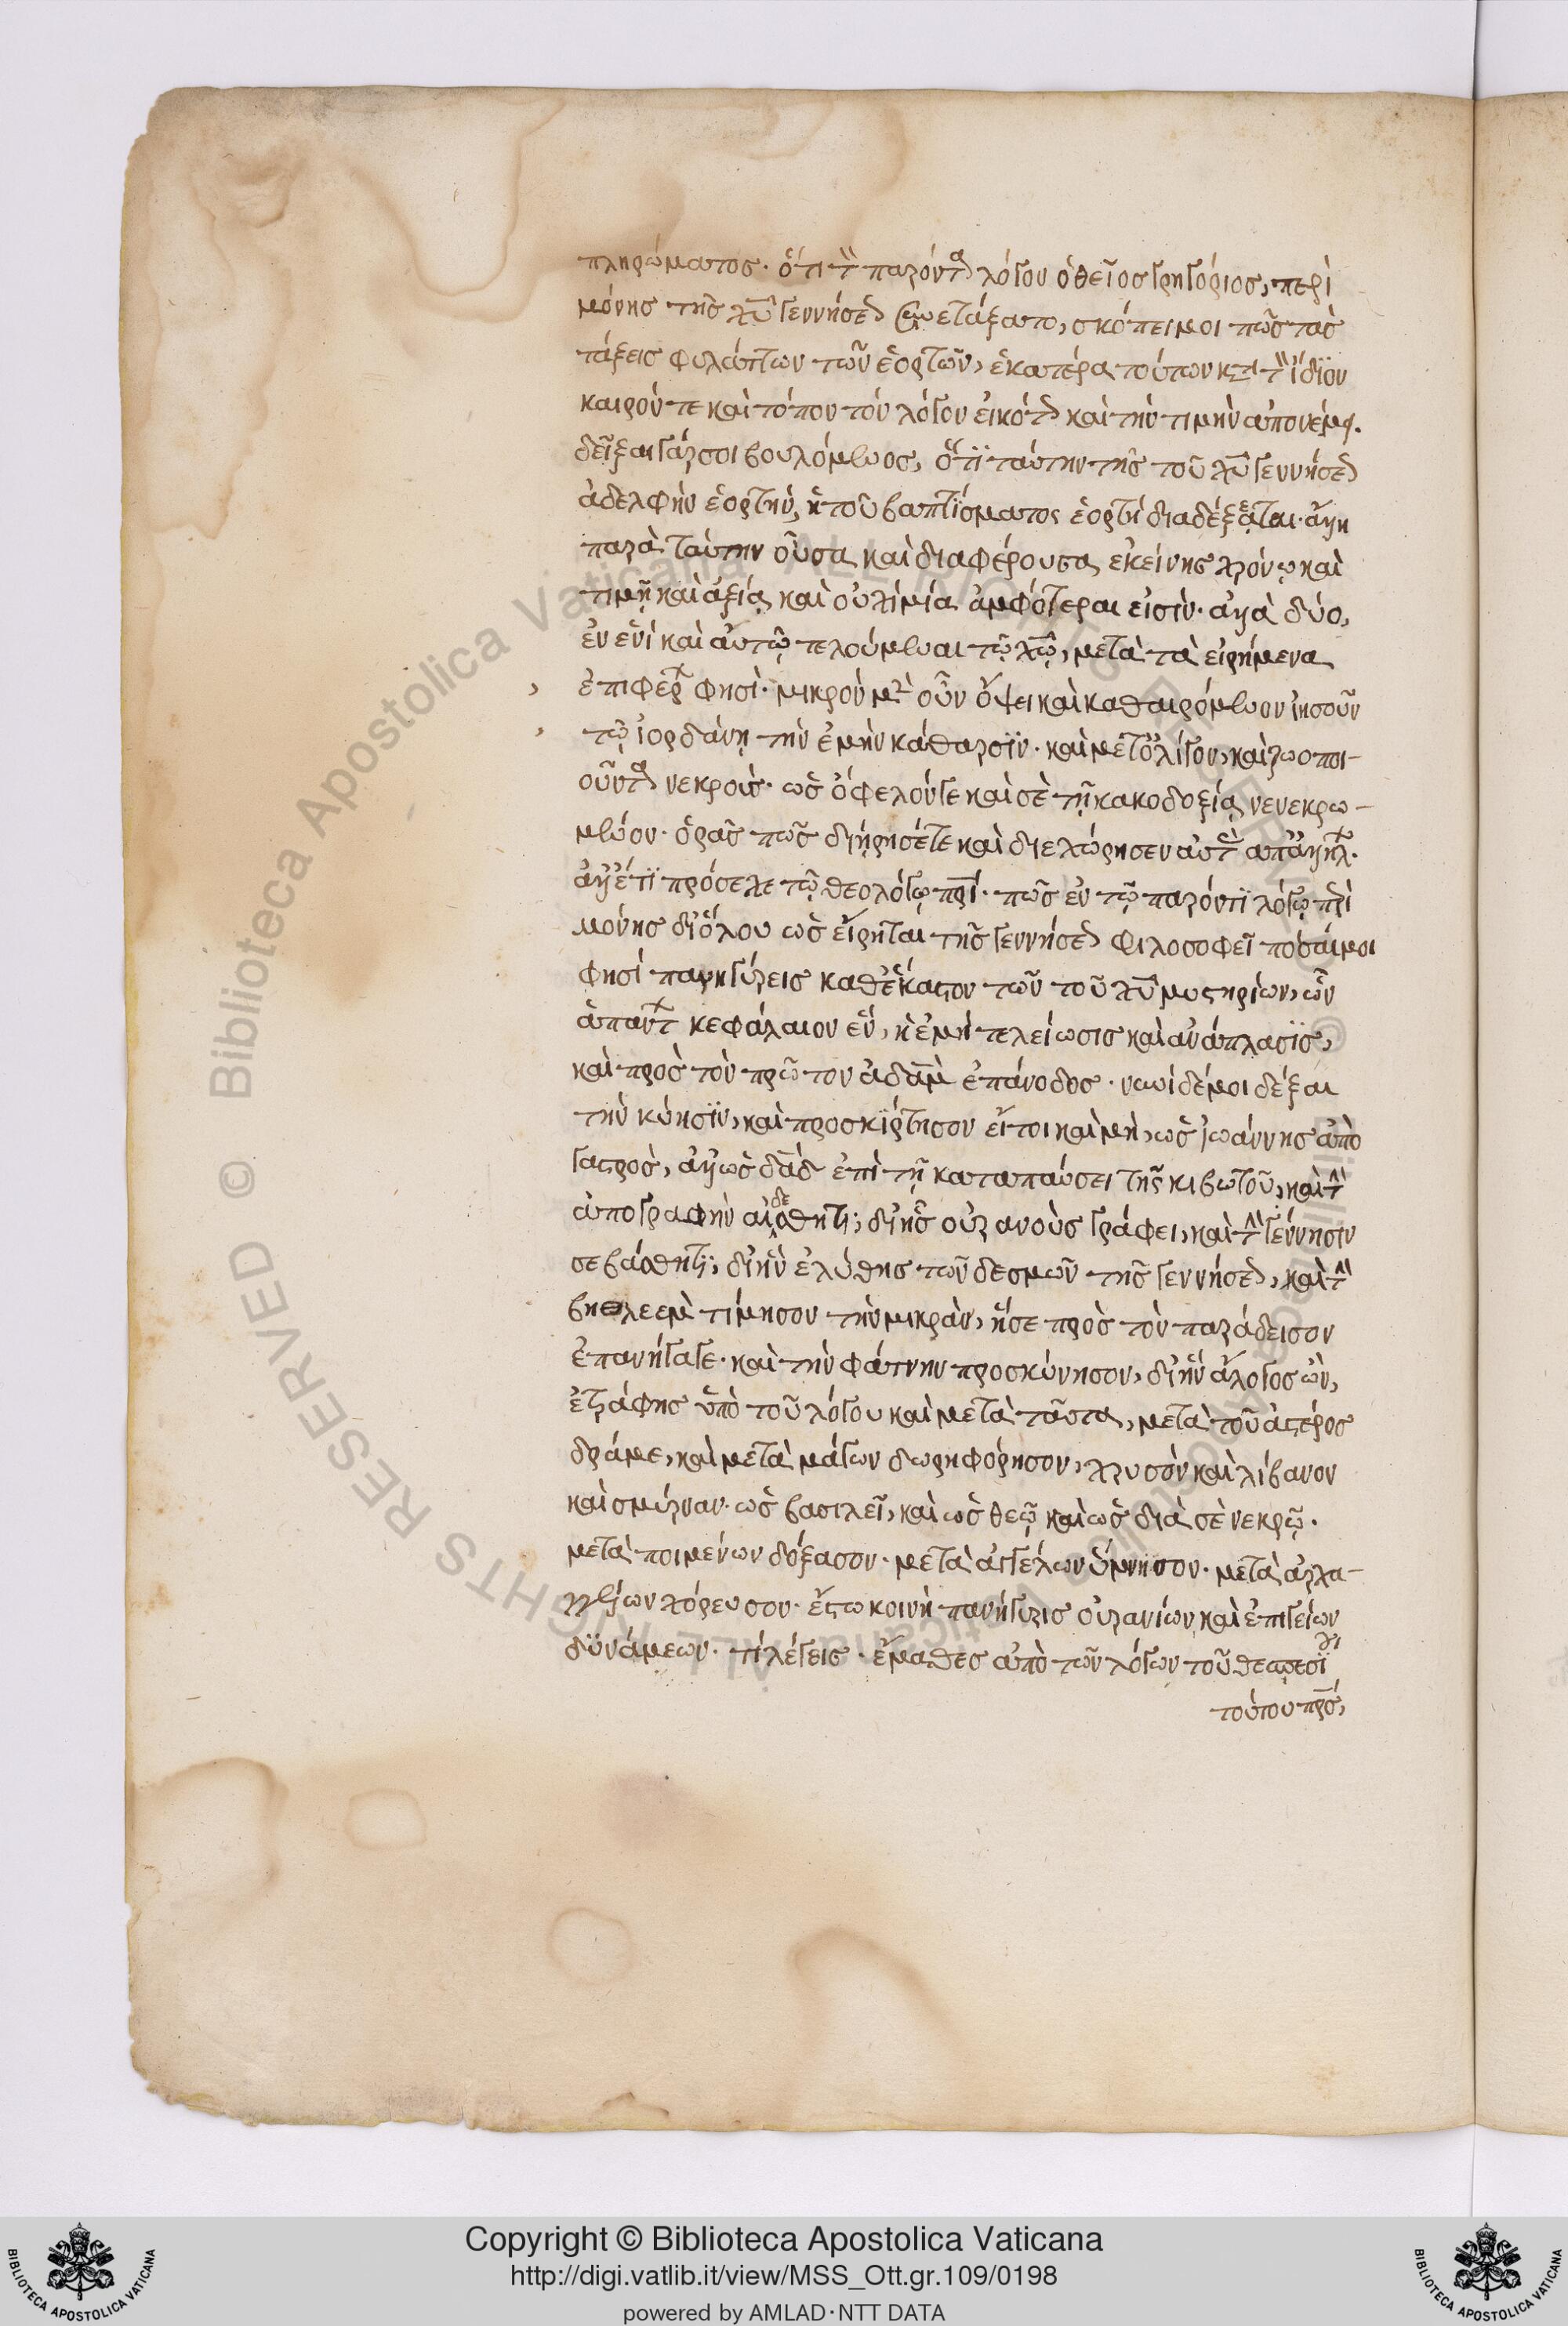 πληρώματος· ὅτι τὸν παρόντα λόγον ὁ θεῖος γρηγόριος, περὶ
μόνης τῆς χυ γεννήσεως συνετάξατο, σκόπει μοι πῶς τὰς
τάξεις φυλάττων τῶν ἑορτῶν, ἑκατέρα τούτων κατὰ τὸν ἴδιον
καιρόν τε καὶ τόπον τὸν λόγον εἰκότως καὶ τὴν τιμὴν ἀπονέμει.
δεῖξαι γάρ σοι βουλόμενος, ὅτι ταύτην τῆς τοῦ χυ γεννήσεως
ἀδελφὴν ἑορτὴν, ἡ τοῦ βαπτίσματος ἑορτὴ διαδέξεται· ἄλλη
παρὰ ταύτην οὖσα καὶ διαφέρουσα ἐκείνης χρόνω καὶ
τιμῇ καὶ ἀξίᾳ καὶ οὐχὶ μία ἀμφότεραι εἰσίν· ἀλλὰ δύο,
ἐν ἑνὶ καὶ αὐτῷ τελούμεναι τῷ χω, μετὰ τὰ εἰρημένα
ἐπιφέρων φησὶ· μικρὸν μὲν οὖν ὄψει καὶ καθαιρόμενον ἰησοῦν
τῷ ἰορδάνῃ τὴν ἐμὴν κάθαρσιν· καὶ μετ' ὀλίγον, καὶ ζωοποι-
οῦντα νεκρούς· ὡς ὄφελόν γε καὶ σὲ τῇ κακοδοξίᾳ νενεκρω-
μένον· ὁρᾶς πῶς διῄρησέ τε καὶ διεχώρησεν αὐτὰς ἀπ' ἀλλήλων·
ἀλλ' ἔτι πρόσεχε τῷ θεολόγῳ πρί· πῶς ἐν τῷ παρόντι λόγῳ περὶ
μόνης δι' ὅλου ὡς εἴρηται τῆς γεννήσεως φιλοσοφεῖ πόσαι μοι
φησὶ πανηγύρεις καθ' ἕκαστον τῶν τοῦ χυ μυστηρίων, ὧν
ἁπάντων κεφάλαιον ἓν, ἡ ἐμὴ τελείωσις καὶ ἀνάπλασις,
καὶ πρὸς τὸν πρῶτον ἀδὰμ ἐπάνοδος· νυνὶ δέ μοι δέξαι
τὴν κύησιν, καὶ προσκίρτησον εἴτοι καὶ μὴ, ὡς ἰωάννης ἀπὸ
γαστρὸς, ἀλλ' ὡς δαδ ἐπὶ τῇ καταπαύσει τῆς κιβωτοῦ, καὶ τὴν
ἀπογραφὴν αἰδέσθητι, δι' ἧς οὐρανοὺς γράφει, καὶ τὴν γέννησιν
σεβάσθητι, δι' ἣν ἐλύθης τῶν δεσμῶν τῆς γεννήσεως, καὶ τὴν
βηθλεεμ τίμησον τὴν μικρὰν, ἥ σε πρὸς τὸν παράδεισον
ἐπανήγαγε· καὶ τὴν φάτνην προσκύνησον, δι' ἣν ἄλογος ὢν,
ἐτράφης ὑπὸ τοῦ λόγου καὶ μετὰ ταῦτα, μετὰ τοῦ ἀστέρος
δράμε, καὶ μετὰ μάγων δωρηφόρησον, χρυσὸν καὶ λίβανον
καὶ σμύρναν· ὡς βασιλεῖ, καὶ ὡς θεῷ καὶ ὡς διὰ σὲ νεκρῷ·
μετὰ ποιμένων δόξασον· μετὰ ἀγγέλων ὕμνησον· μετὰ ἀρχα-
γγέλων χόρευσον· ἔστω κοινὴ πανήγυρις οὐρανίων καὶ ἐπιγείων
δυνάμεων· τί λέγεις· ἔμαθες ἀπὸ τῶν λόγων τοῦ θεσπεσίου
τούτου πρς,
Copyright © Biblioteca Apostolica Vaticana
http://digi.vatlib.it/view/MSS_Ott.gr.109/0198
powered by AMLAD·NTT DATA
BIBLIOTECA APOSTOLICA VATICANA
BIBLIOTECA APOSTOLICA VATICANA